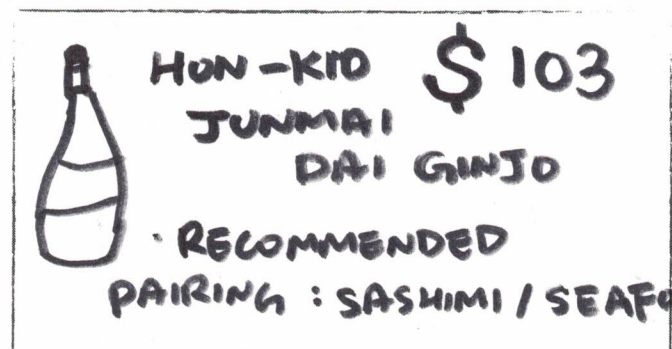 HON-KIO $103
JUNMAI
DAI GINJO
· RECOMMENDED
PAIRING : SASHIMI / SEAFO